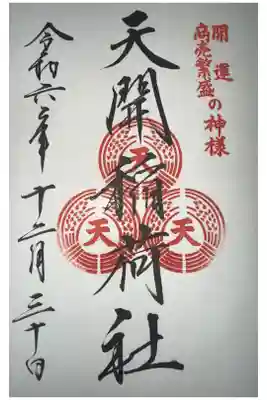 開運
商売繁盛の神様
天開稲荷社
天
天
天
令和六年十二月三十日